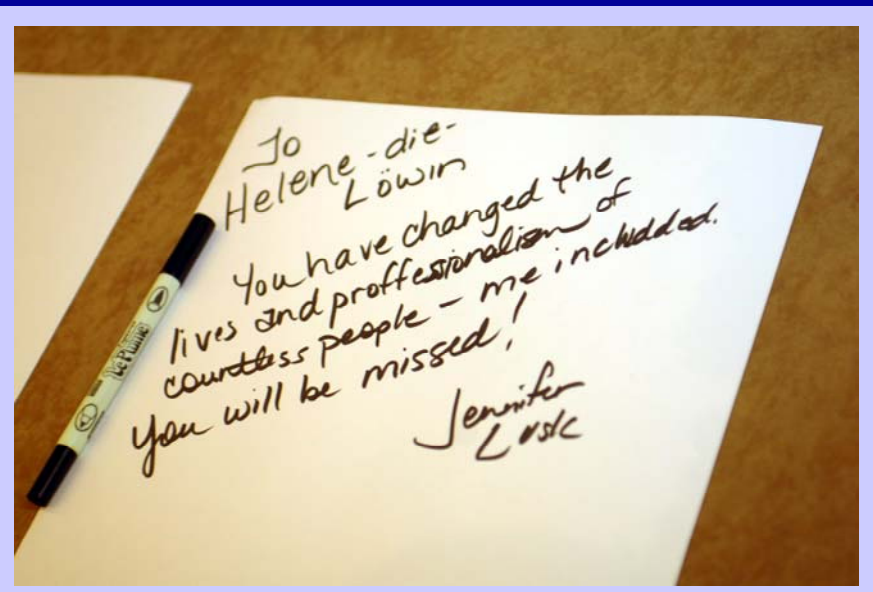 To
Helene-die-
Löwin
You have changed the
lives and proffessionalism of
countless people - me included.
You will be missed!
Jennifer
Lusk
Le Plume